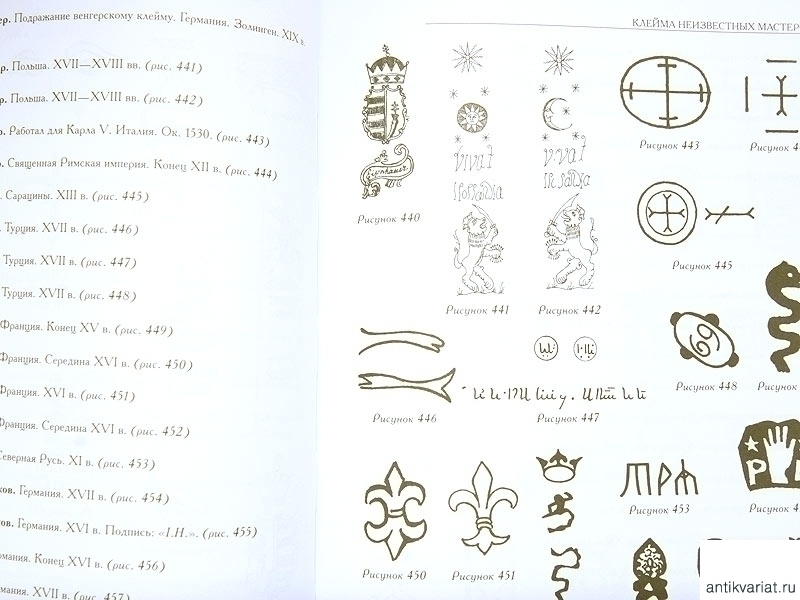 Подражание венгерскому клейму. Германия. Золинген. XIX в.
Польша. XVII—XVIII вв. (рис. 441)
Польша. XVII—XVIII вв. (рис. 442)
Работал для Карла V. Италия. Ок. 1530. (рис. 443)
Священная Римская империя. Конец XII в. (рис. 444)
Сарацины. XIII в. (рис. 445)
Турция. XVII в. (рис. 446)
Турция. XVII в. (рис. 447)
Турция. XVII в. (рис. 448)
Франция. Конец XV в. (рис. 449)
Франция. Середина XVI в. (рис. 450)
Франция. XVI в. (рис. 451)
Франция. Середина XVI в. (рис. 452)
Северная Русь. XI в. (рис. 453)
Германия. XVII в. (рис. 454)
Германия. XVI в. Подпись: «I.H.». (рис. 455)
Конец XVI в. (рис. 456)
XVII в. (рис. 457)
КЛЕЙМА НЕИЗВЕСТНЫХ МАСТЕР
Рисунок 440
vivat
Рисунок 441
Рисунок 442
Рисунок 443
Рисунок 445
Рисунок 446
Рисунок 447
69
Рисунок 448
Рисунок 450
Рисунок 451
Рисунок 453
P
antikvariat.ru